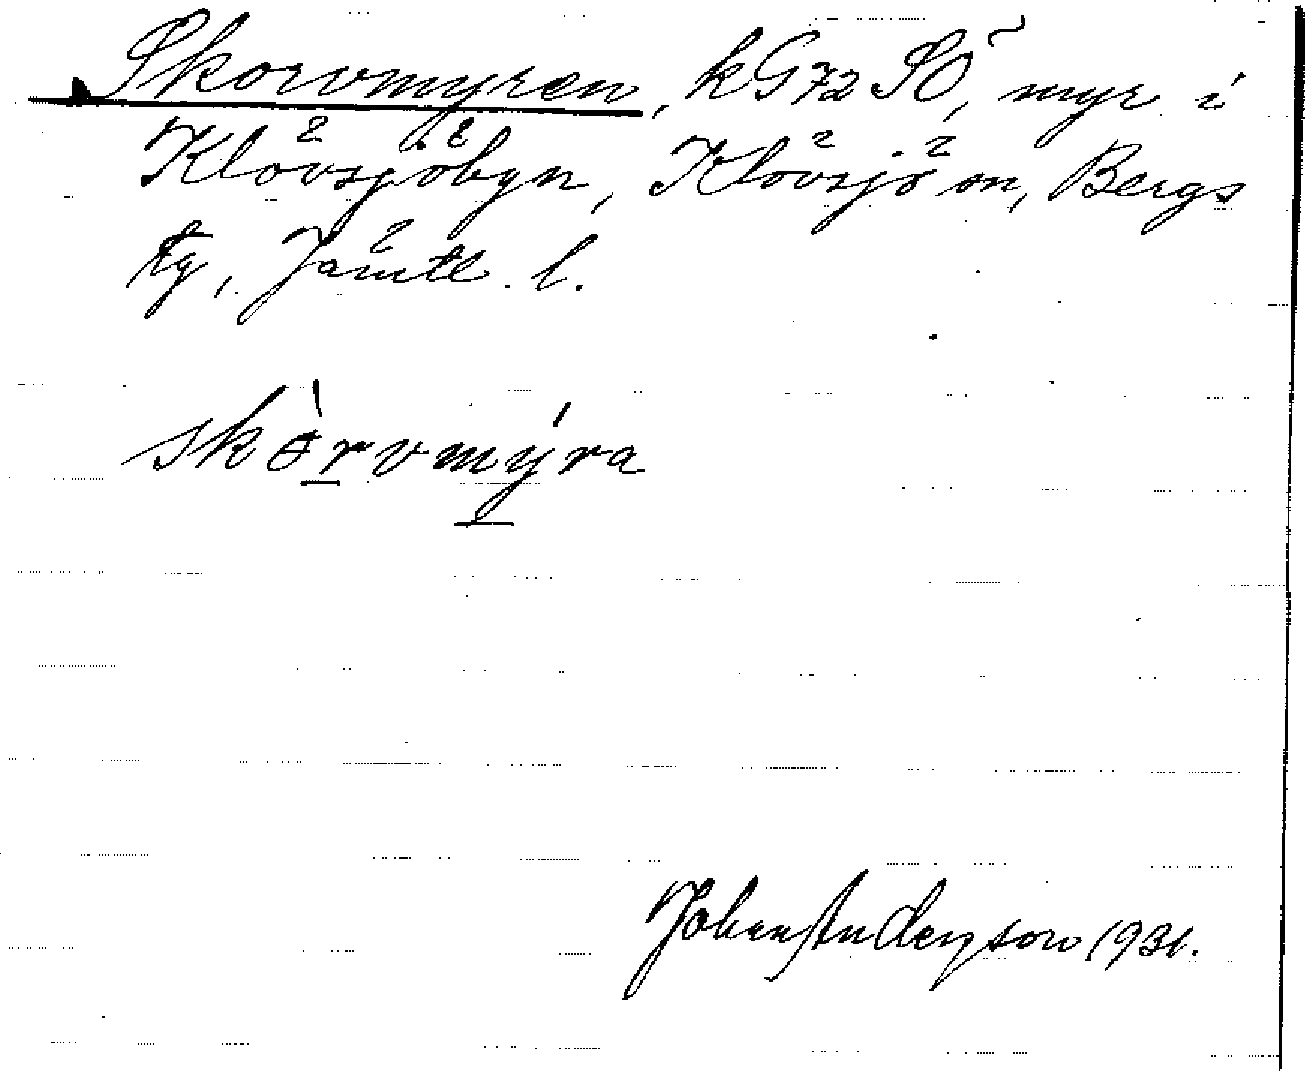 Skorvmyren, kG72 SÖ, myr i
Klövsjöbyn, Klövsjö sn, Bergs
tg, Jämtl. l.
skɵ̀rvmýra
Johan Anderson 1931.